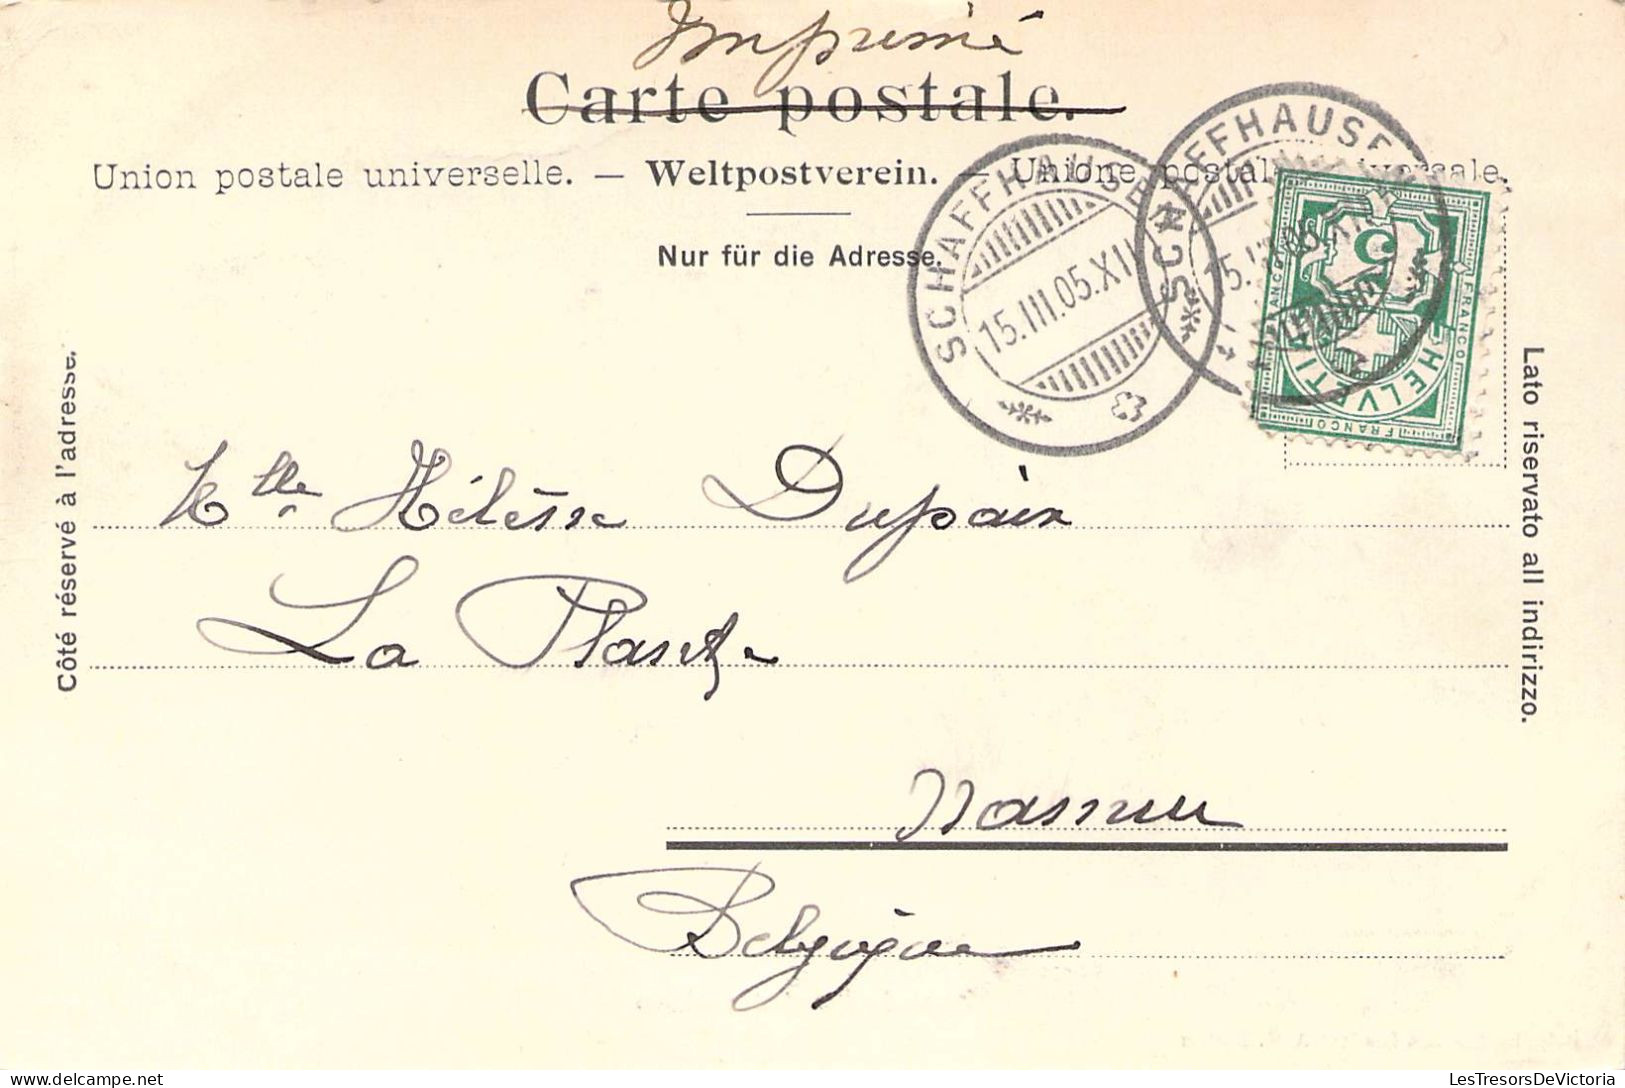 Imprimé
Carte postale.
Union postale universelle. — Weltpostverein. — Unione postale universale.
Nur für die Adresse.
SCHAFFHAUSEN
15.III.05.XII
SCHAFFHAUSEN
HELVETIA
FRANCO
FRANCO
FRANCO
5
Côté réservé à l'adresse.
Lato riservato all indirizzo.
Mlle Hélène Dupaix
La Plante
Namur
Belgique
LesTresorsDeVictoria